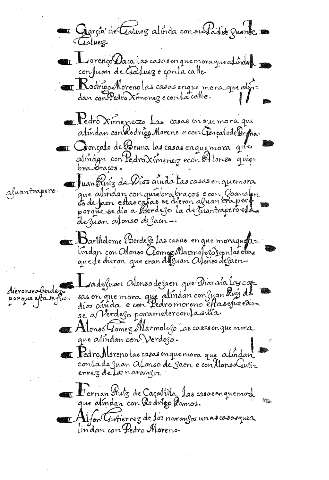 Garçia de Galuez alinda con su Padre Juan de
Galuez.
Lorenço Daça las casas en que mora que alindan
con Juan de Galuez e con la calle.
Rodrigo Moreno las casas en que mora, que alin-
dan con Pedro Ximenez e con la calle.
Pedro Ximenezzo Las casas en que mora que
alindan con Rodrigo Moreno e con Gonçalo de
Gonçalo de las casas en que mora que
alindan con Pedro Ximenez e con Alonso quie-
brabraços.
Juan Ruiz de Dios ayuda Las casas en que mora
que alindan con quiebrabraços e con
de Jaen estas casas se dieron a Juan trapero
porque se dio a Berdejo la de Juan trapero e la
de Juan Alonso de Jaen
a Juan trapero
Bartolome Berdejo las casas en que mora que a-
lindan con Alonso Gomez Marmolejo son las otras
que le dieron que eran de Juan Alonso de Jaen
La de Juan Alonso de Jaen que Dios aia las cas-
as en que mora que alindan con Juan Ruiz de
dios aiuda e con Pedro moreno esta se
se a Verdejo para meter con la suia
porque
Alonso Gomez Marmolejo las casas en que mora
que alindan con Verdejo.
Pedro Moreno las casas en que mora que alindan
con la de Juan Alonso de Jaen e con Alonso Gutie-
rrez de los naranjos
Fernan Ruiz de Caçalilla las casas en que mora
que alindan con Rodrigo Ramos.
Alfon Gutierrez de los naranjos unas casas que a-
lindan con Pedro Moreno